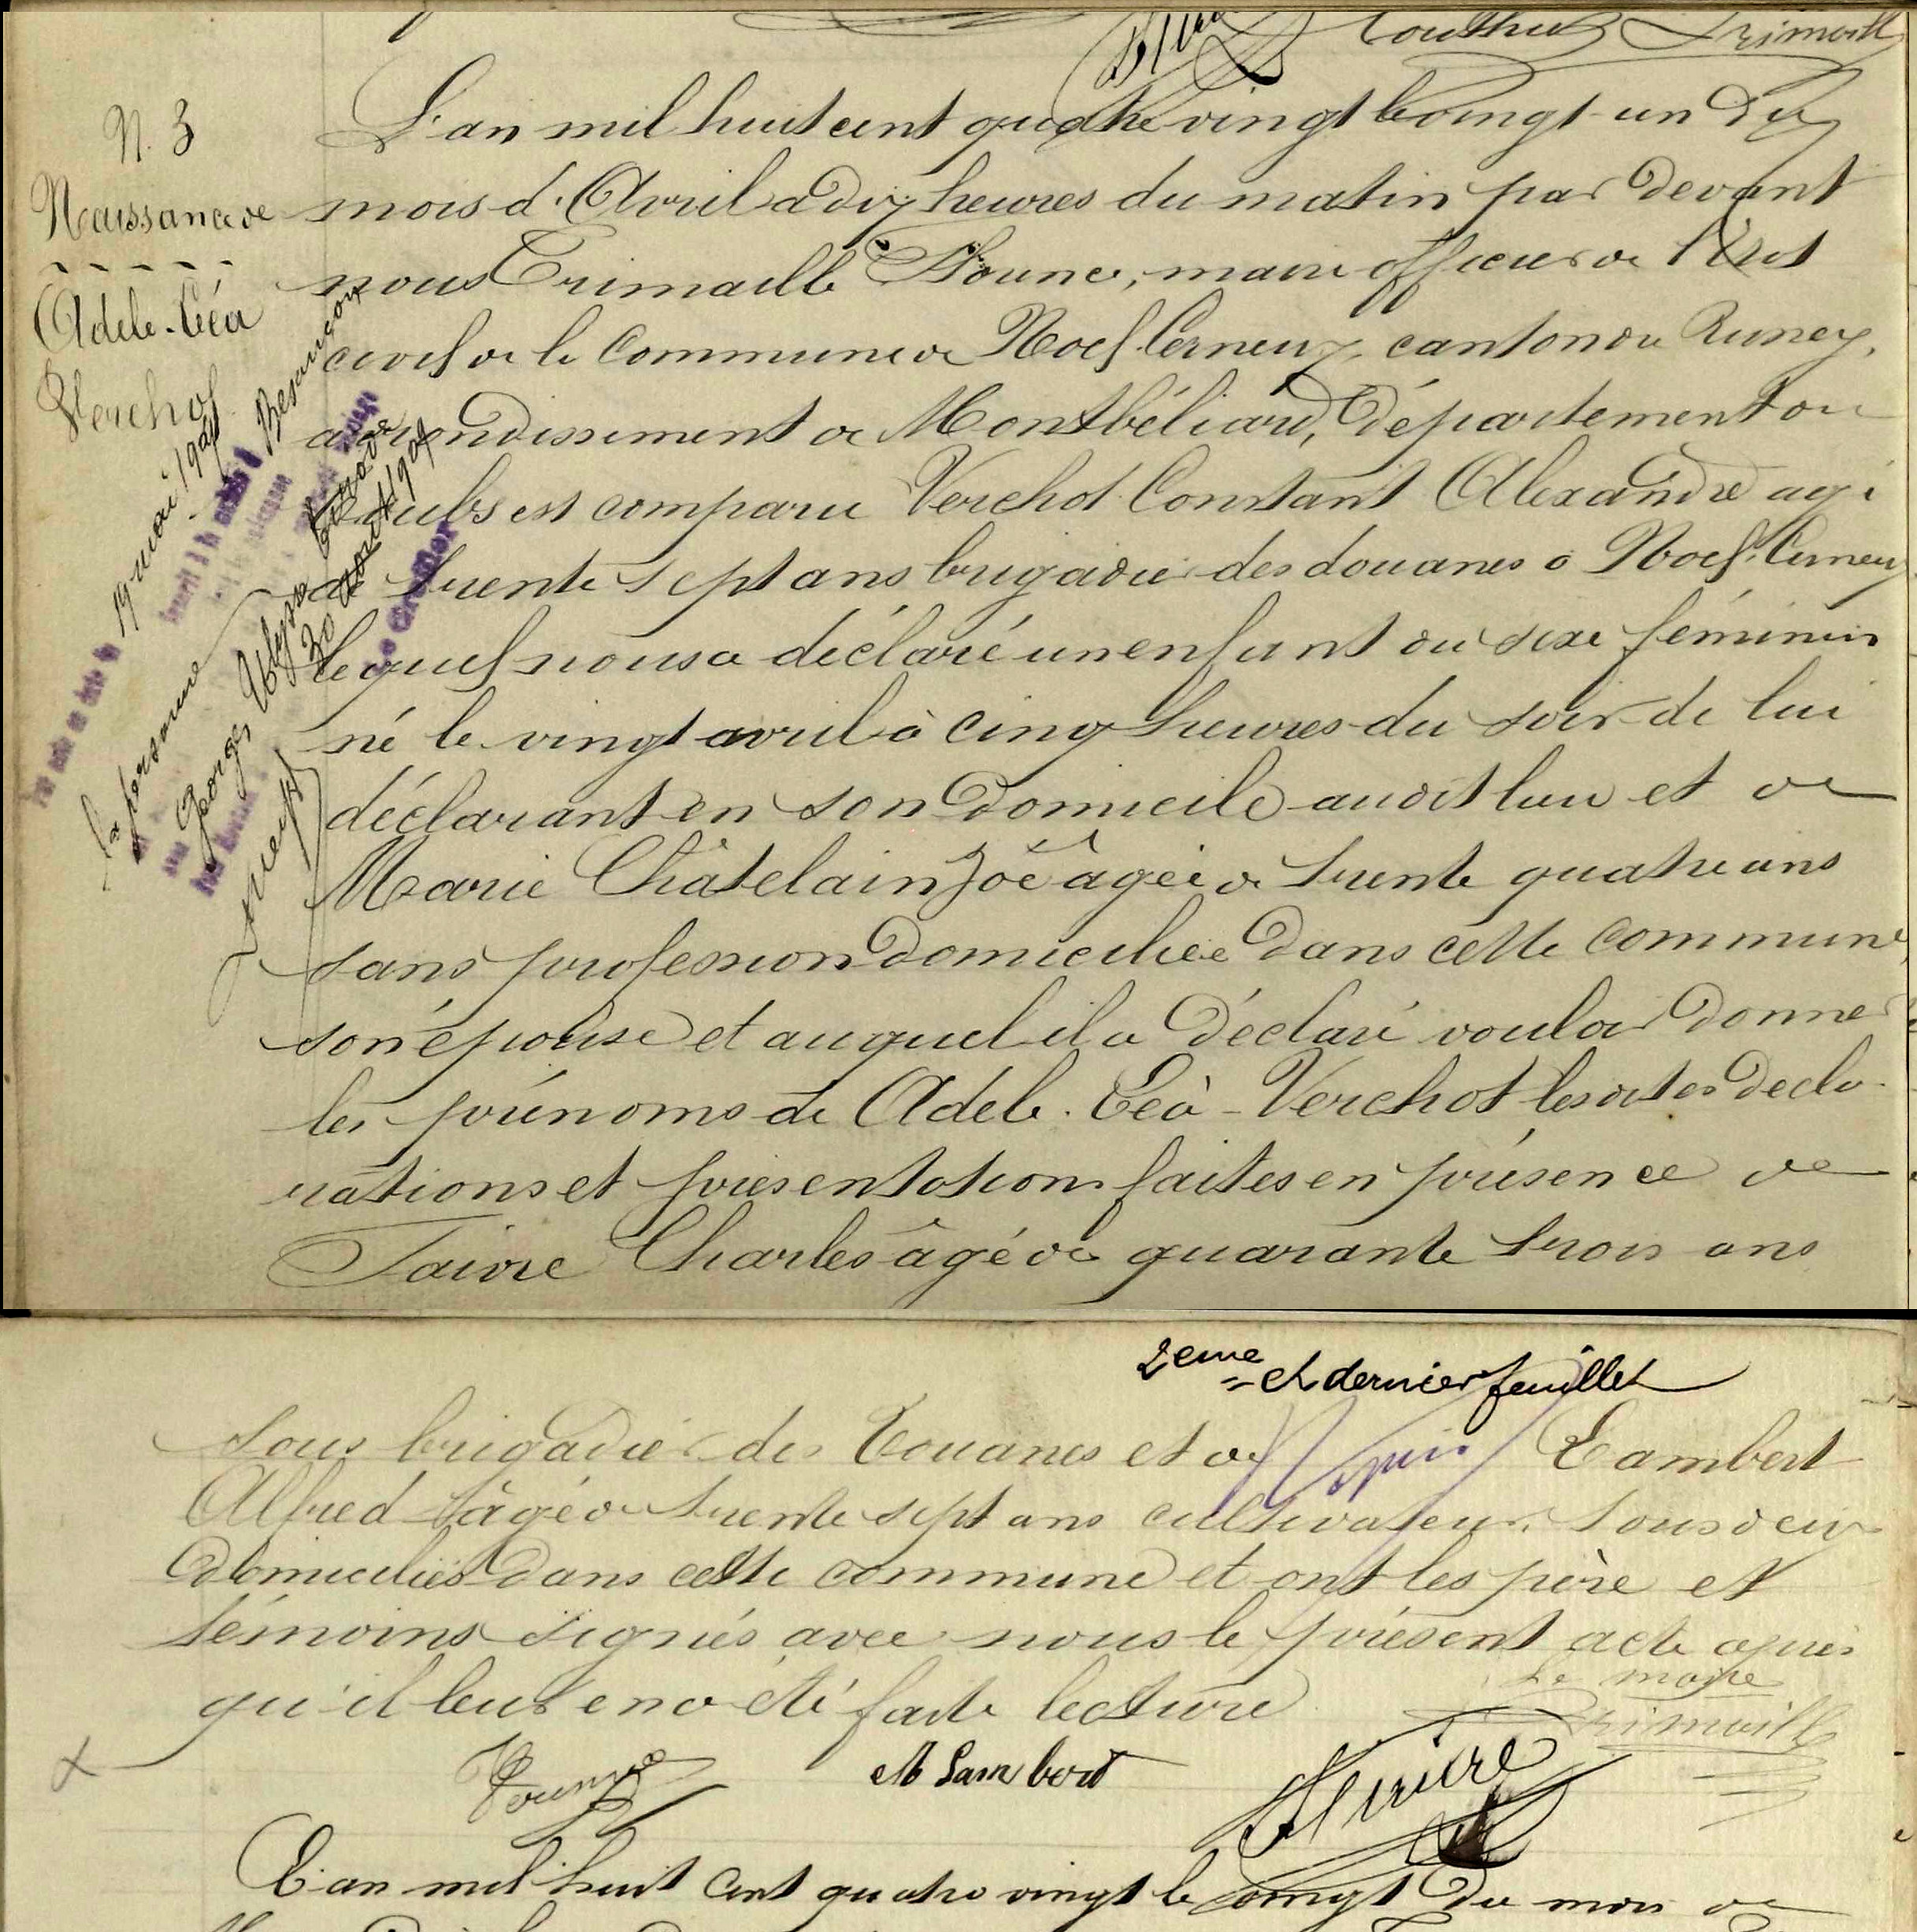 Trimaill
N. 3
Naissance de
Adele-Léa
Verchot
L'an mil huit cent quatre vingt le vingt un du
mois d'Avril a dix heures du matin par devant
nous Trimaille maire officier de l'État
civil de le Commune de Noel Cerneux canton du Russey,
arrondissement de Montbéliard, Département du
Doubs est comparu Verchot Constant Alexandre agé
de trente sept ans brigadier des douanes a Noel-Cerneux
lequel nous a déclaré un enfant du sexe féminin
né le vingt avril à cinq heures du soir de lui
déclarant en son Domicile audit lieu et de
Marie Châtelain Zoé âgée de trente quatre ans
sans profession Domiciliée Dans cette commune,
son épouse et auquel il a Déclaré vouloir Donner
les prénoms de Adele. Léa-Verchot lesdites Decla-
rations et présentation faites en présence de
Faivre Charles âgé de quarante trois ans
19 mai 194
Besançon
la personne
Georges Ulysse
30 août 190
2eme et dernier feuillet
Sous brigadier des Douanes et de Lambert
Alfred âgé de trente sept ans cultivateur. tous deux
Domiciliés Dans cette commune et ont les père et
témoins signés avec nous le présent acte après
qu'il leur en a été faite lecture
Le maire
Trimaille
A Lambert
L'an mil huit cent quatre vingt le vingt Du mois de